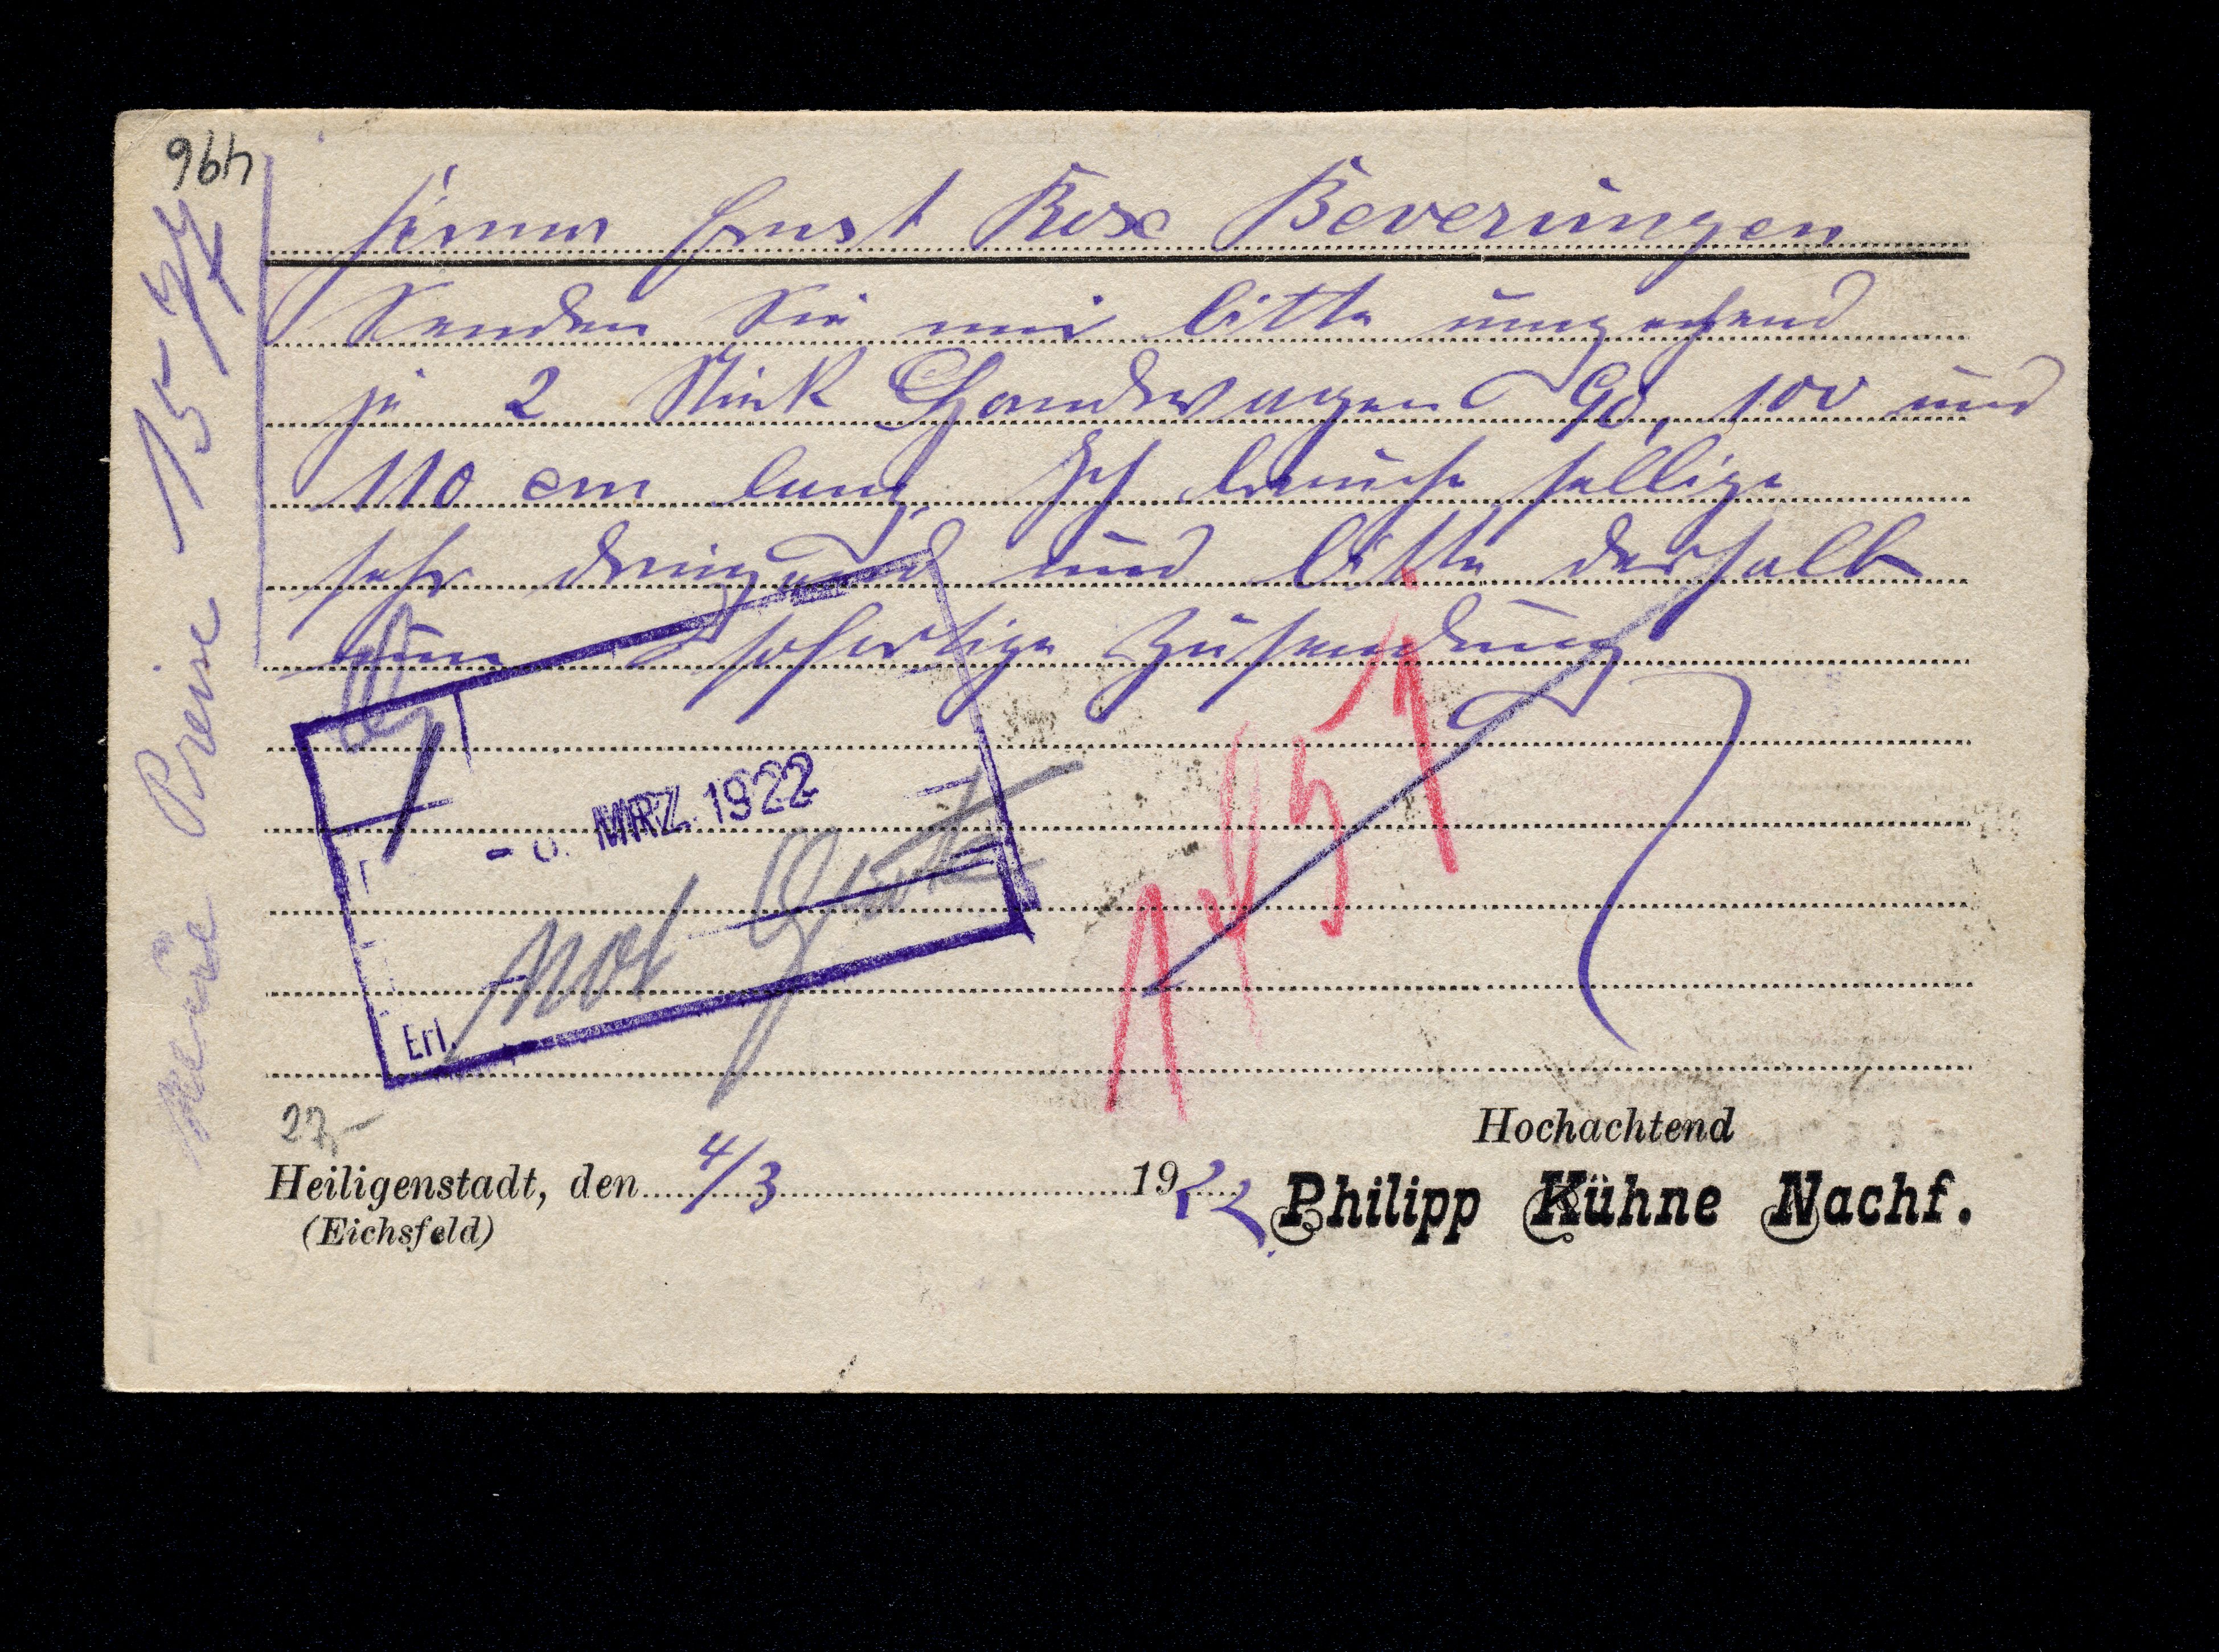 496
Firma Ernst Rose Beverungen
Senden Sie mir bitte umgehend
je 2 Stück Handwagen 90, 100 und
110 cm lang. Ich brauche selbige
sehr dringend und bitte deshalb
um sofortige Zusendung
Neue Preise 15
MRZ. 1922
Erl.
27,-
Hochachtend
Heiligenstadt, den 4/3 1922. Philipp Kühne Nachf.
(Eichsfeld)